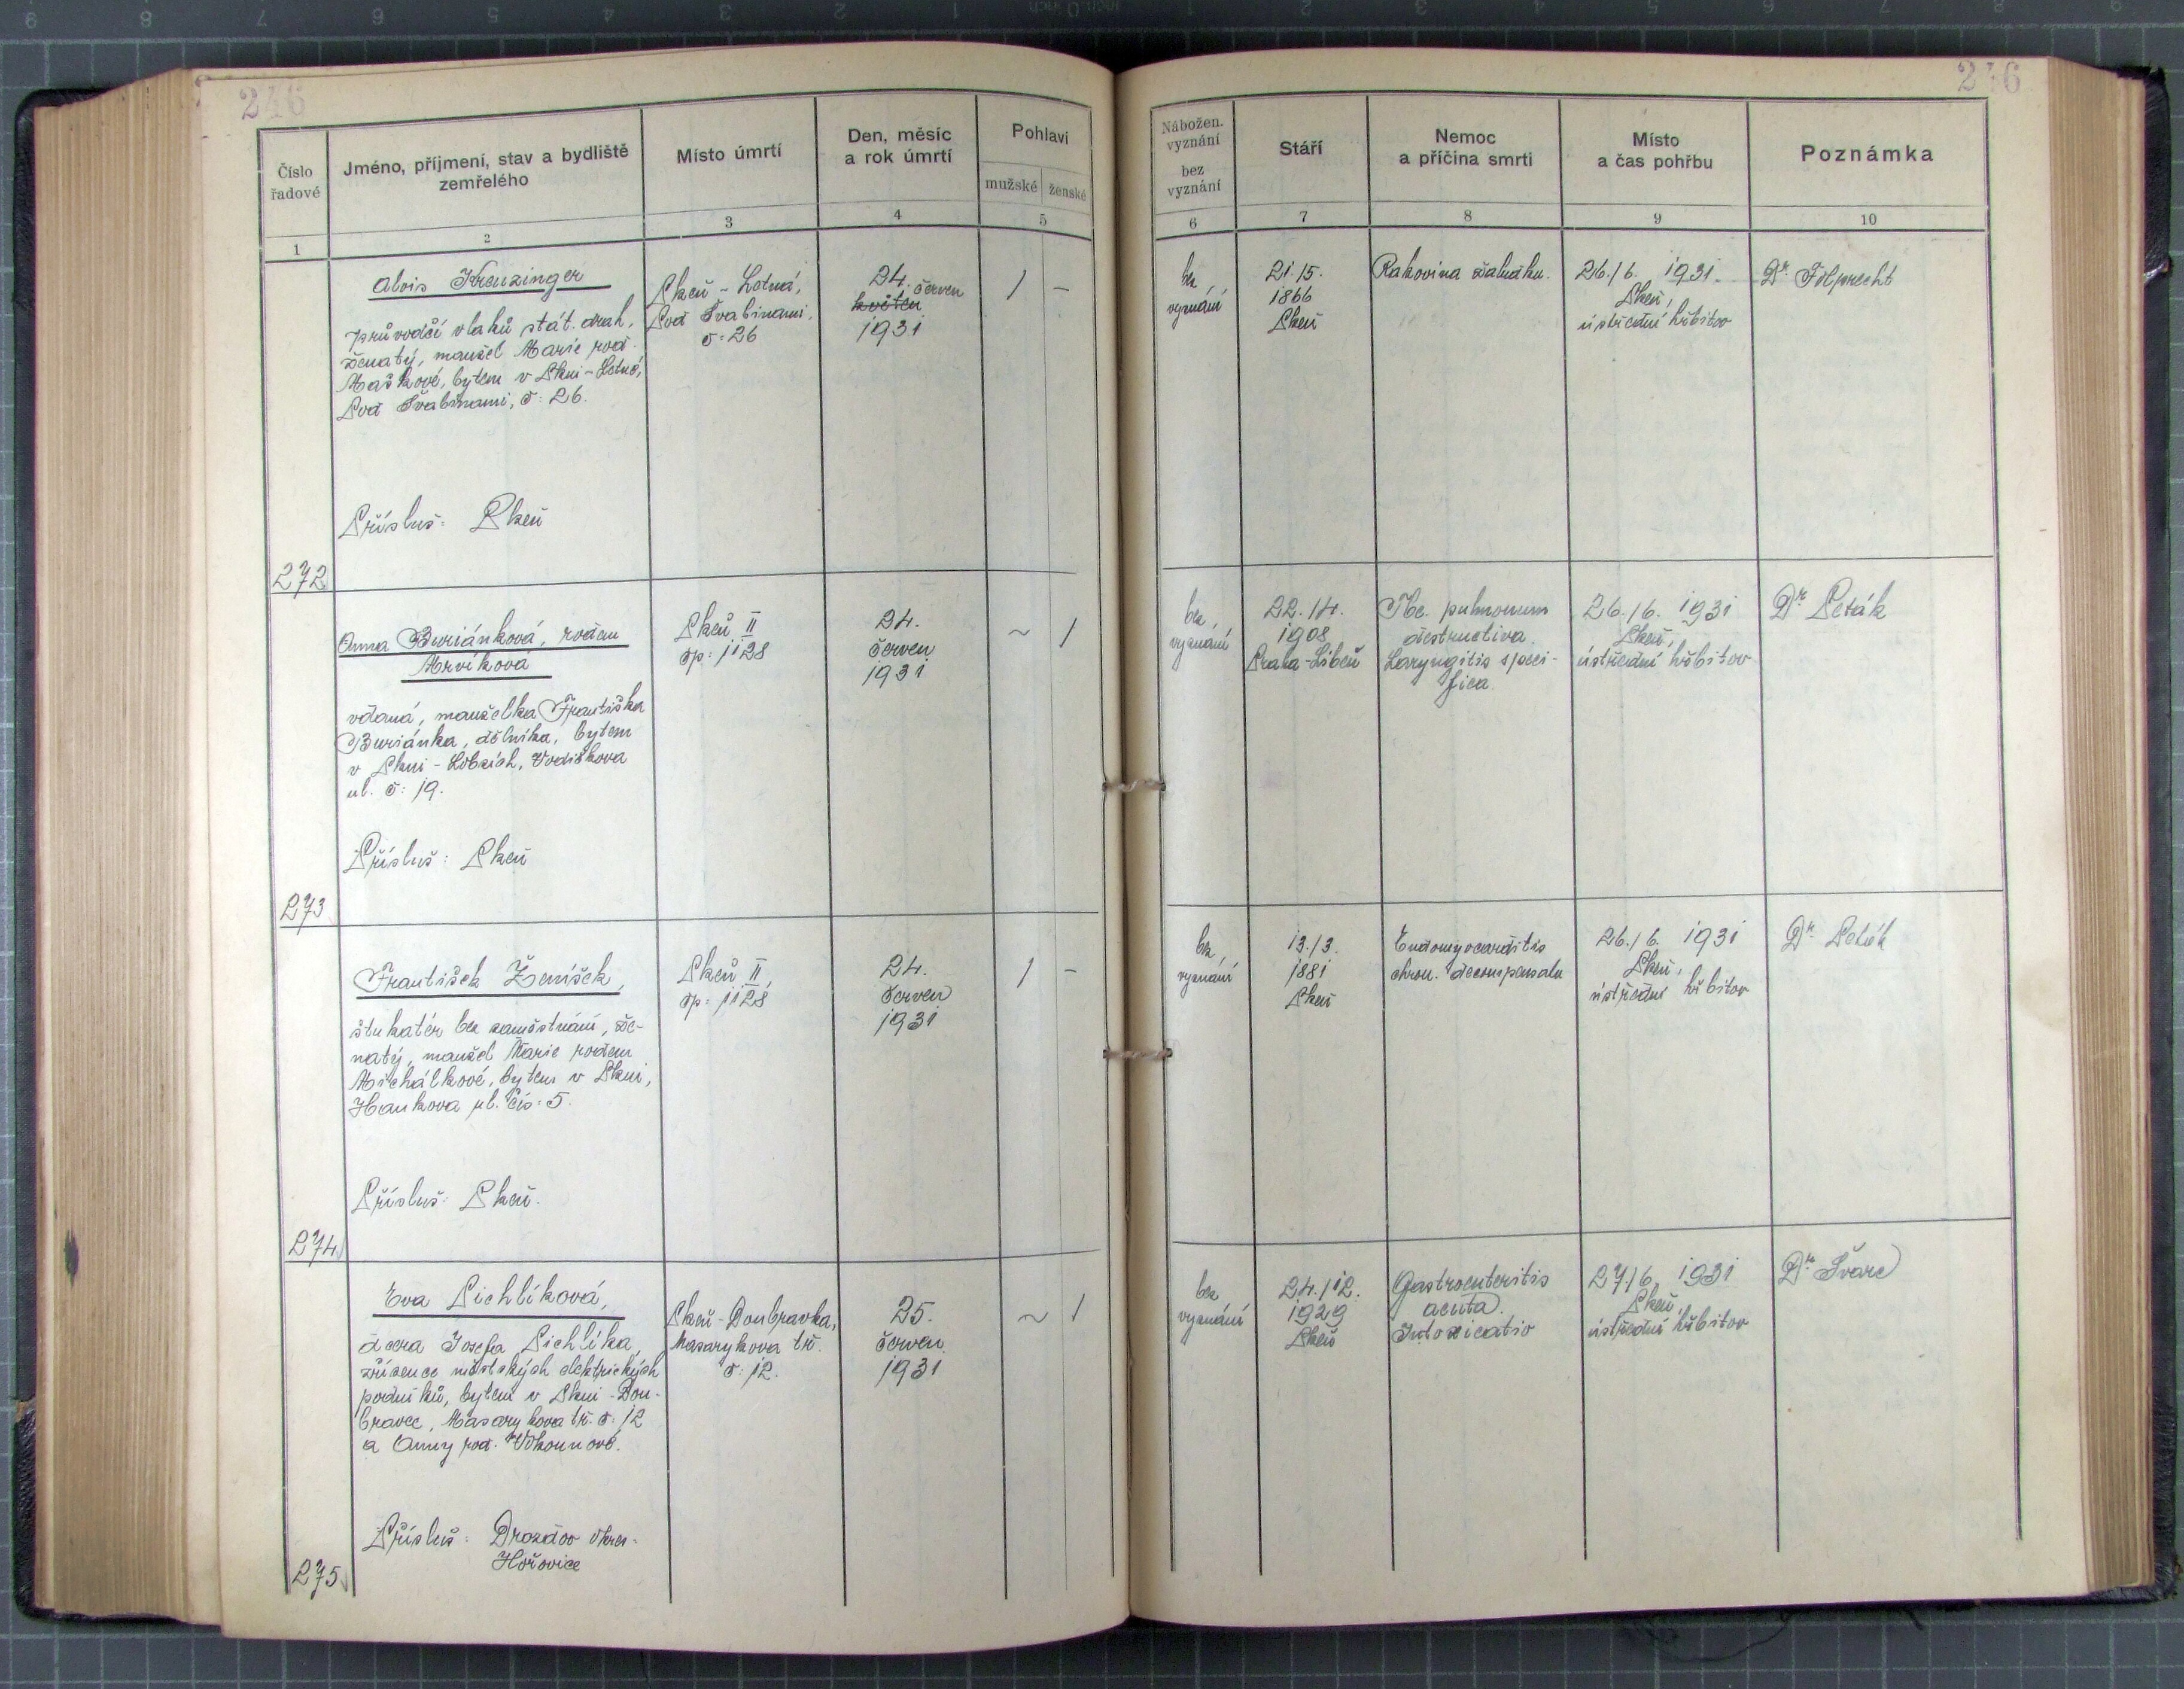 246
Číslo
řadové
Jméno, příjmení, stav a bydliště
zemřelého
Místo úmrtí
Den, měsíc
a rok úmrtí
Pohlaví
mužské
ženské
1
2
3
4
5
Alois Kreuzinger
průvodčí vlaků stát. drah,
ženatý, manžel Marie rod.
Maškové, bytem v Plzni-Letné,
Pod Švabinami, č: 26.
Přísluš: Plzeň
272
Plzeň - Letná,
Pod Švabinami,
č: 26
24. červen
květen
1931
1
-
Anna Buriánková, rozen
Mrvíková
vdaná, manželka Františka
Buriánka, dělníka, bytem
v Plzni - Lobzích, Vodičkova
ul. č: 19.
Přísluš: Plzeň
273
Plzeň II
čp: 1128
24.
červen
1931
~
1
František Ženíšek,
štukatér bez zaměstnání, že-
natý, manžel Marie rozen
Michálkové, bytem v Plzni,
Hankova ul. čís: 5.
Přísluš: Plzeň.
274
Plzeň II,
čp: 1128
24.
červen
1931
1
-
Eva Pichlíková,
dcera Josefa Pichlíka,
zřízence městských elektrických
podniků, bytem v Plzni - Dou-
bravce, Masarykova tř. č: 12
a Anny rod.
Přísluš: Drozdov okres
Hořovice
275
Plzeň - Doubravka,
Masarykova tř.
č: 12.
25.
červen
1931
~
1
246
Nábožen.
vyznání
bez
vyznání
Stáří
Nemoc
a příčina smrti
Místo
a čas pohřbu
Poznámka
6
7
8
9
10
bez
vyznání
21./5.
1866
Plzeň
Rakovina žaludku.
26./6. 1931
Plzeň,
ústřední hřbitov
Dr. Filprecht
bez
vyznání
22./4.
1908
Praha-Libeň
Tbc. pulmonum
destructiva.
Laryngitis speci-
fica.
26./6. 1931
Plzeň,
ústřední hřbitov
Dr. Peták
bez
vyznání
13./3.
1881
Plzeň
Endomyocarditis
chron. decompensata
26./6. 1931
Plzeň,
ústřední hřbitov
Dr. Peták
bez
vyznání
24./12.
1929
Plzeň
Gastroenteritis
acuta.
Intoxicatio
27./6. 1931
Plzeň,
ústřední hřbitov
Dr. Švarc